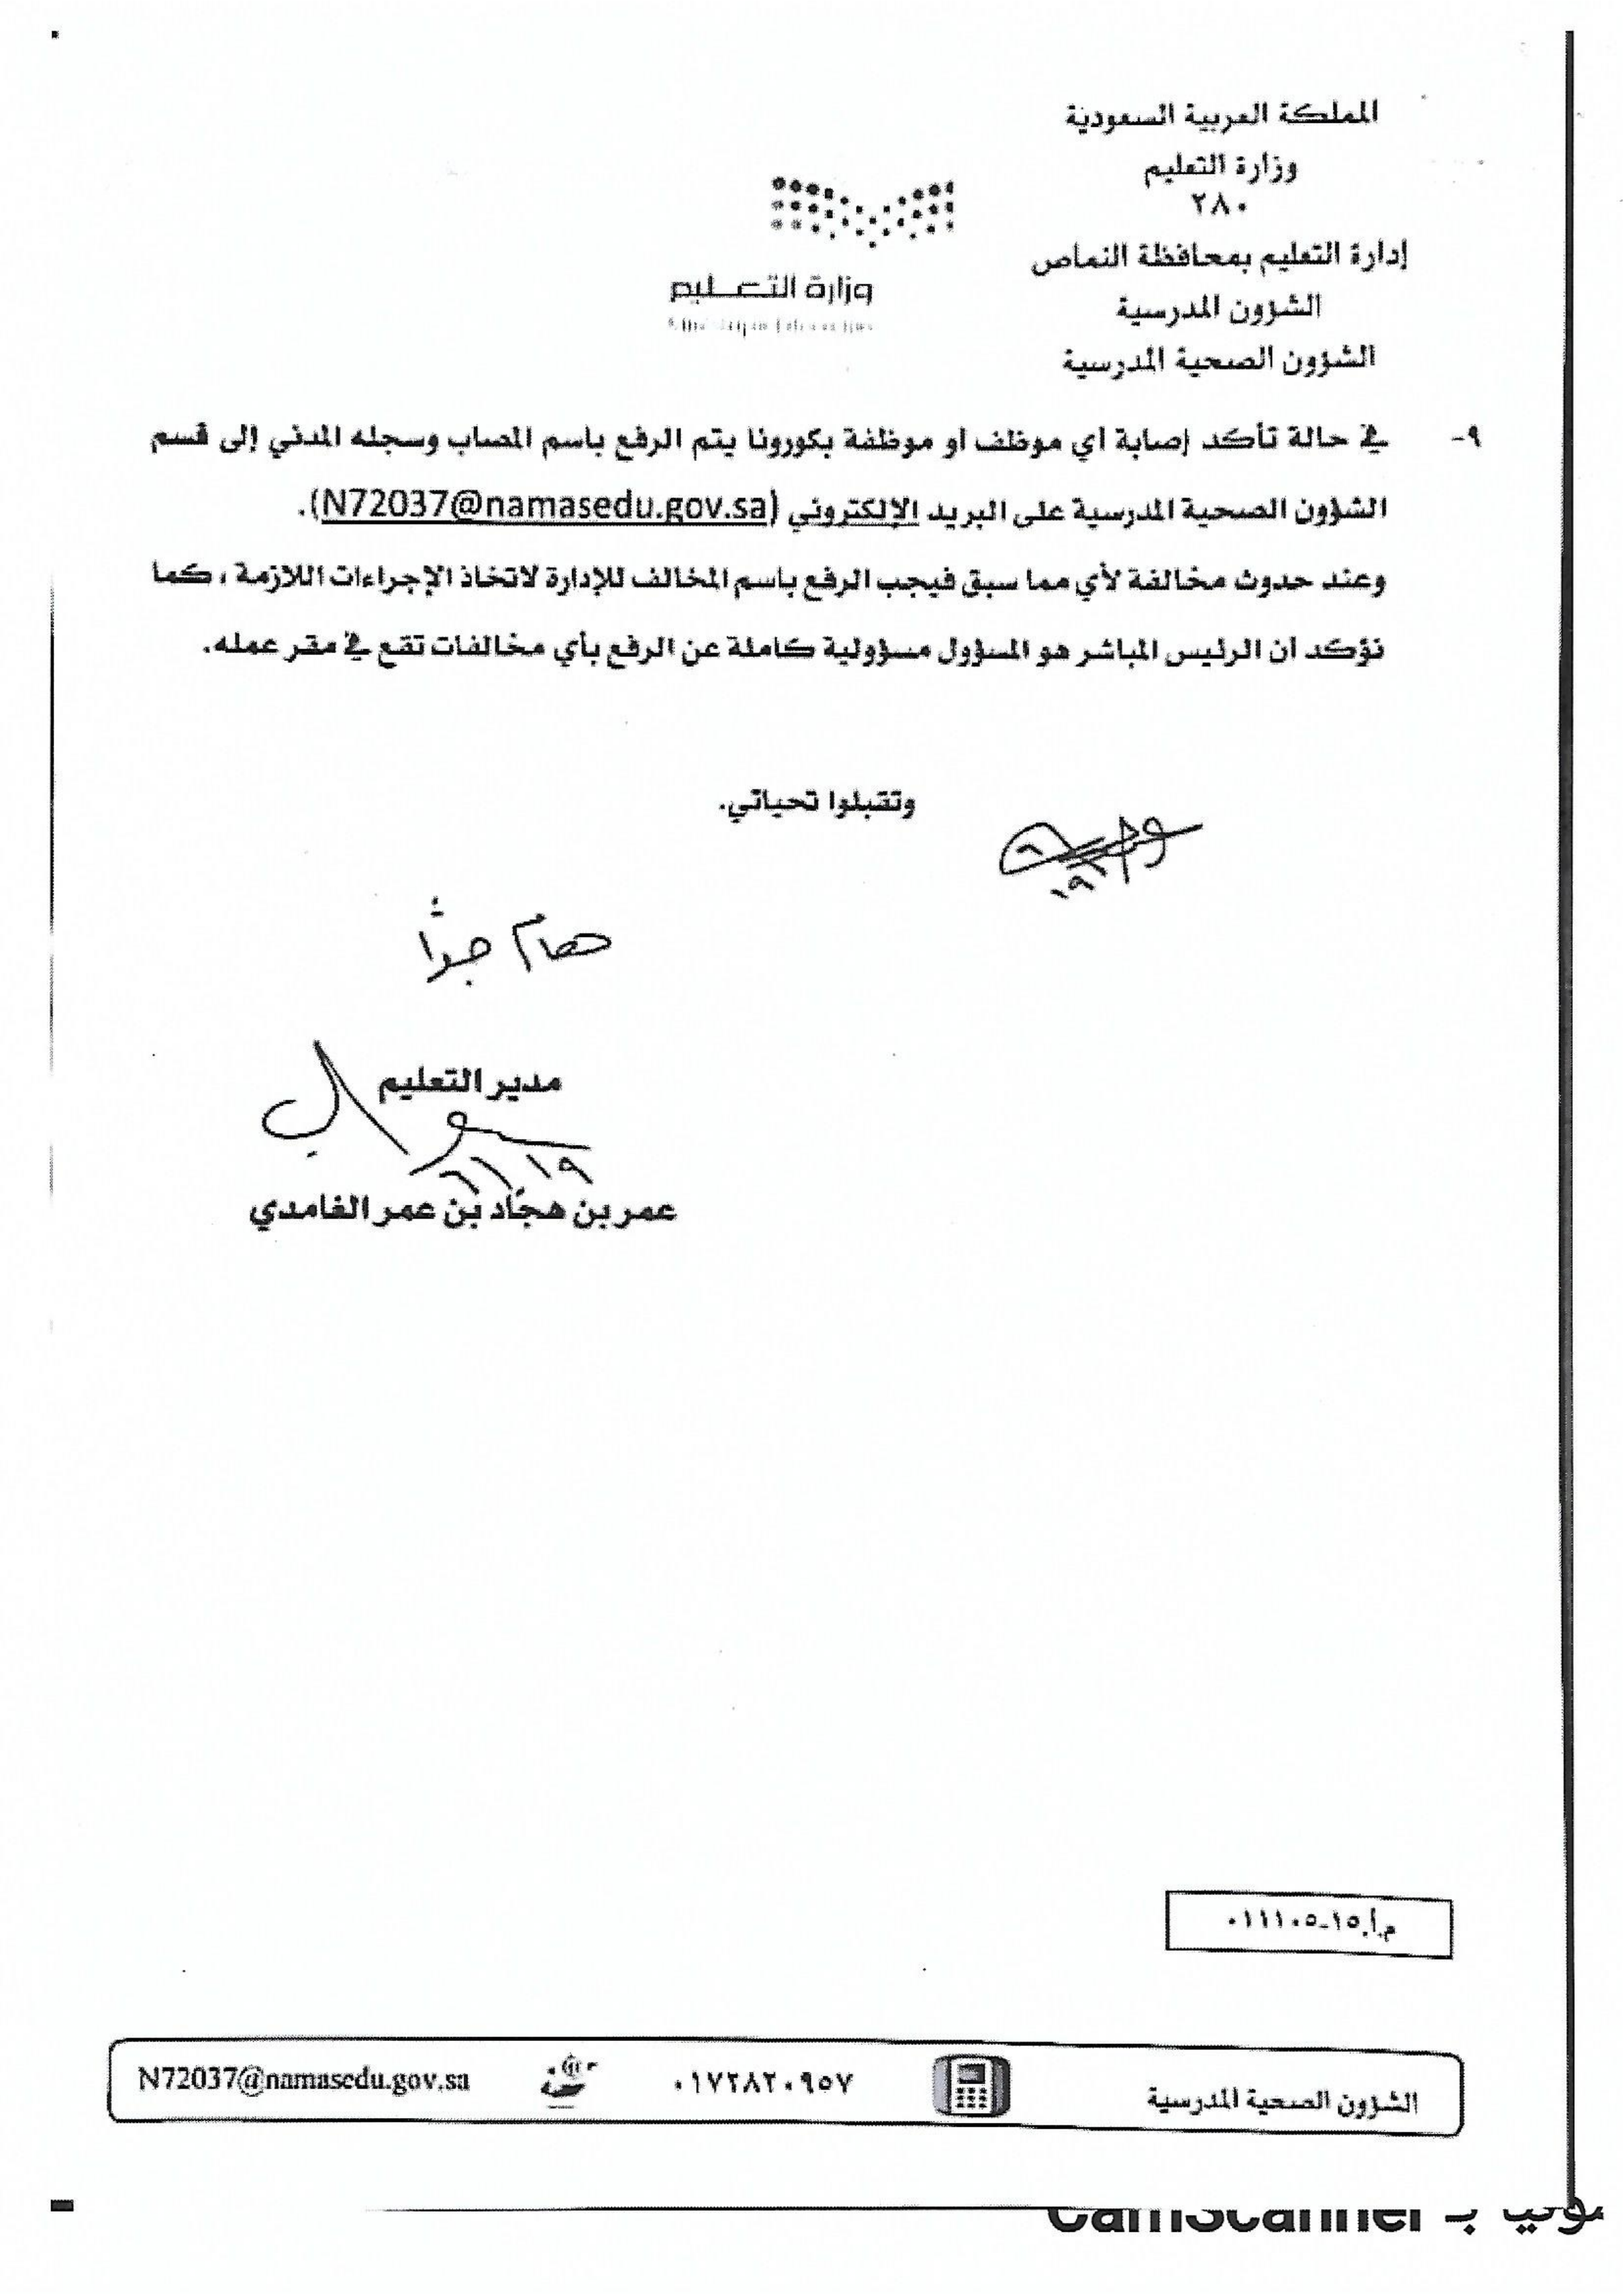 المملكة العربية السعودية
وزارة التعليم
٢٨٠
إدارة التعليم بمحافظة النماص
الشؤون المدرسية
الشؤون الصحية المدرسية
وزارة التعـــليم
٩- في حالة تأكد إصابة أي موظف او موظفة بكورونا يتم الرفع باسم المصاب وسجله المدني إلى قسم
الشؤون الصحية المدرسية على البريد الإلكتروني (N72037@namasedu.gov.sa).
وعند حدوث مخالفة لأي مما سبق فيجب الرفع باسم المخالف للإدارة لاتخاذ الإجراءات اللازمة ، كما
نؤكد ان الرئيس المباشر هو المسؤول مسؤولية كاملة عن الرفع بأي مخالفات تقع في مقر عمله.
وتقبلوا تحياتي.
هام جداً
مدير التعليم
٦/١٩
عمر بن هجّاد بن عمر الغامدي
م.أ.١٥-٠١١١٠٥
الشؤون الصحية المدرسية
٠١٧٢٨٢٠٩٥٧
N72037@namasedu.gov.sa
CamScanner